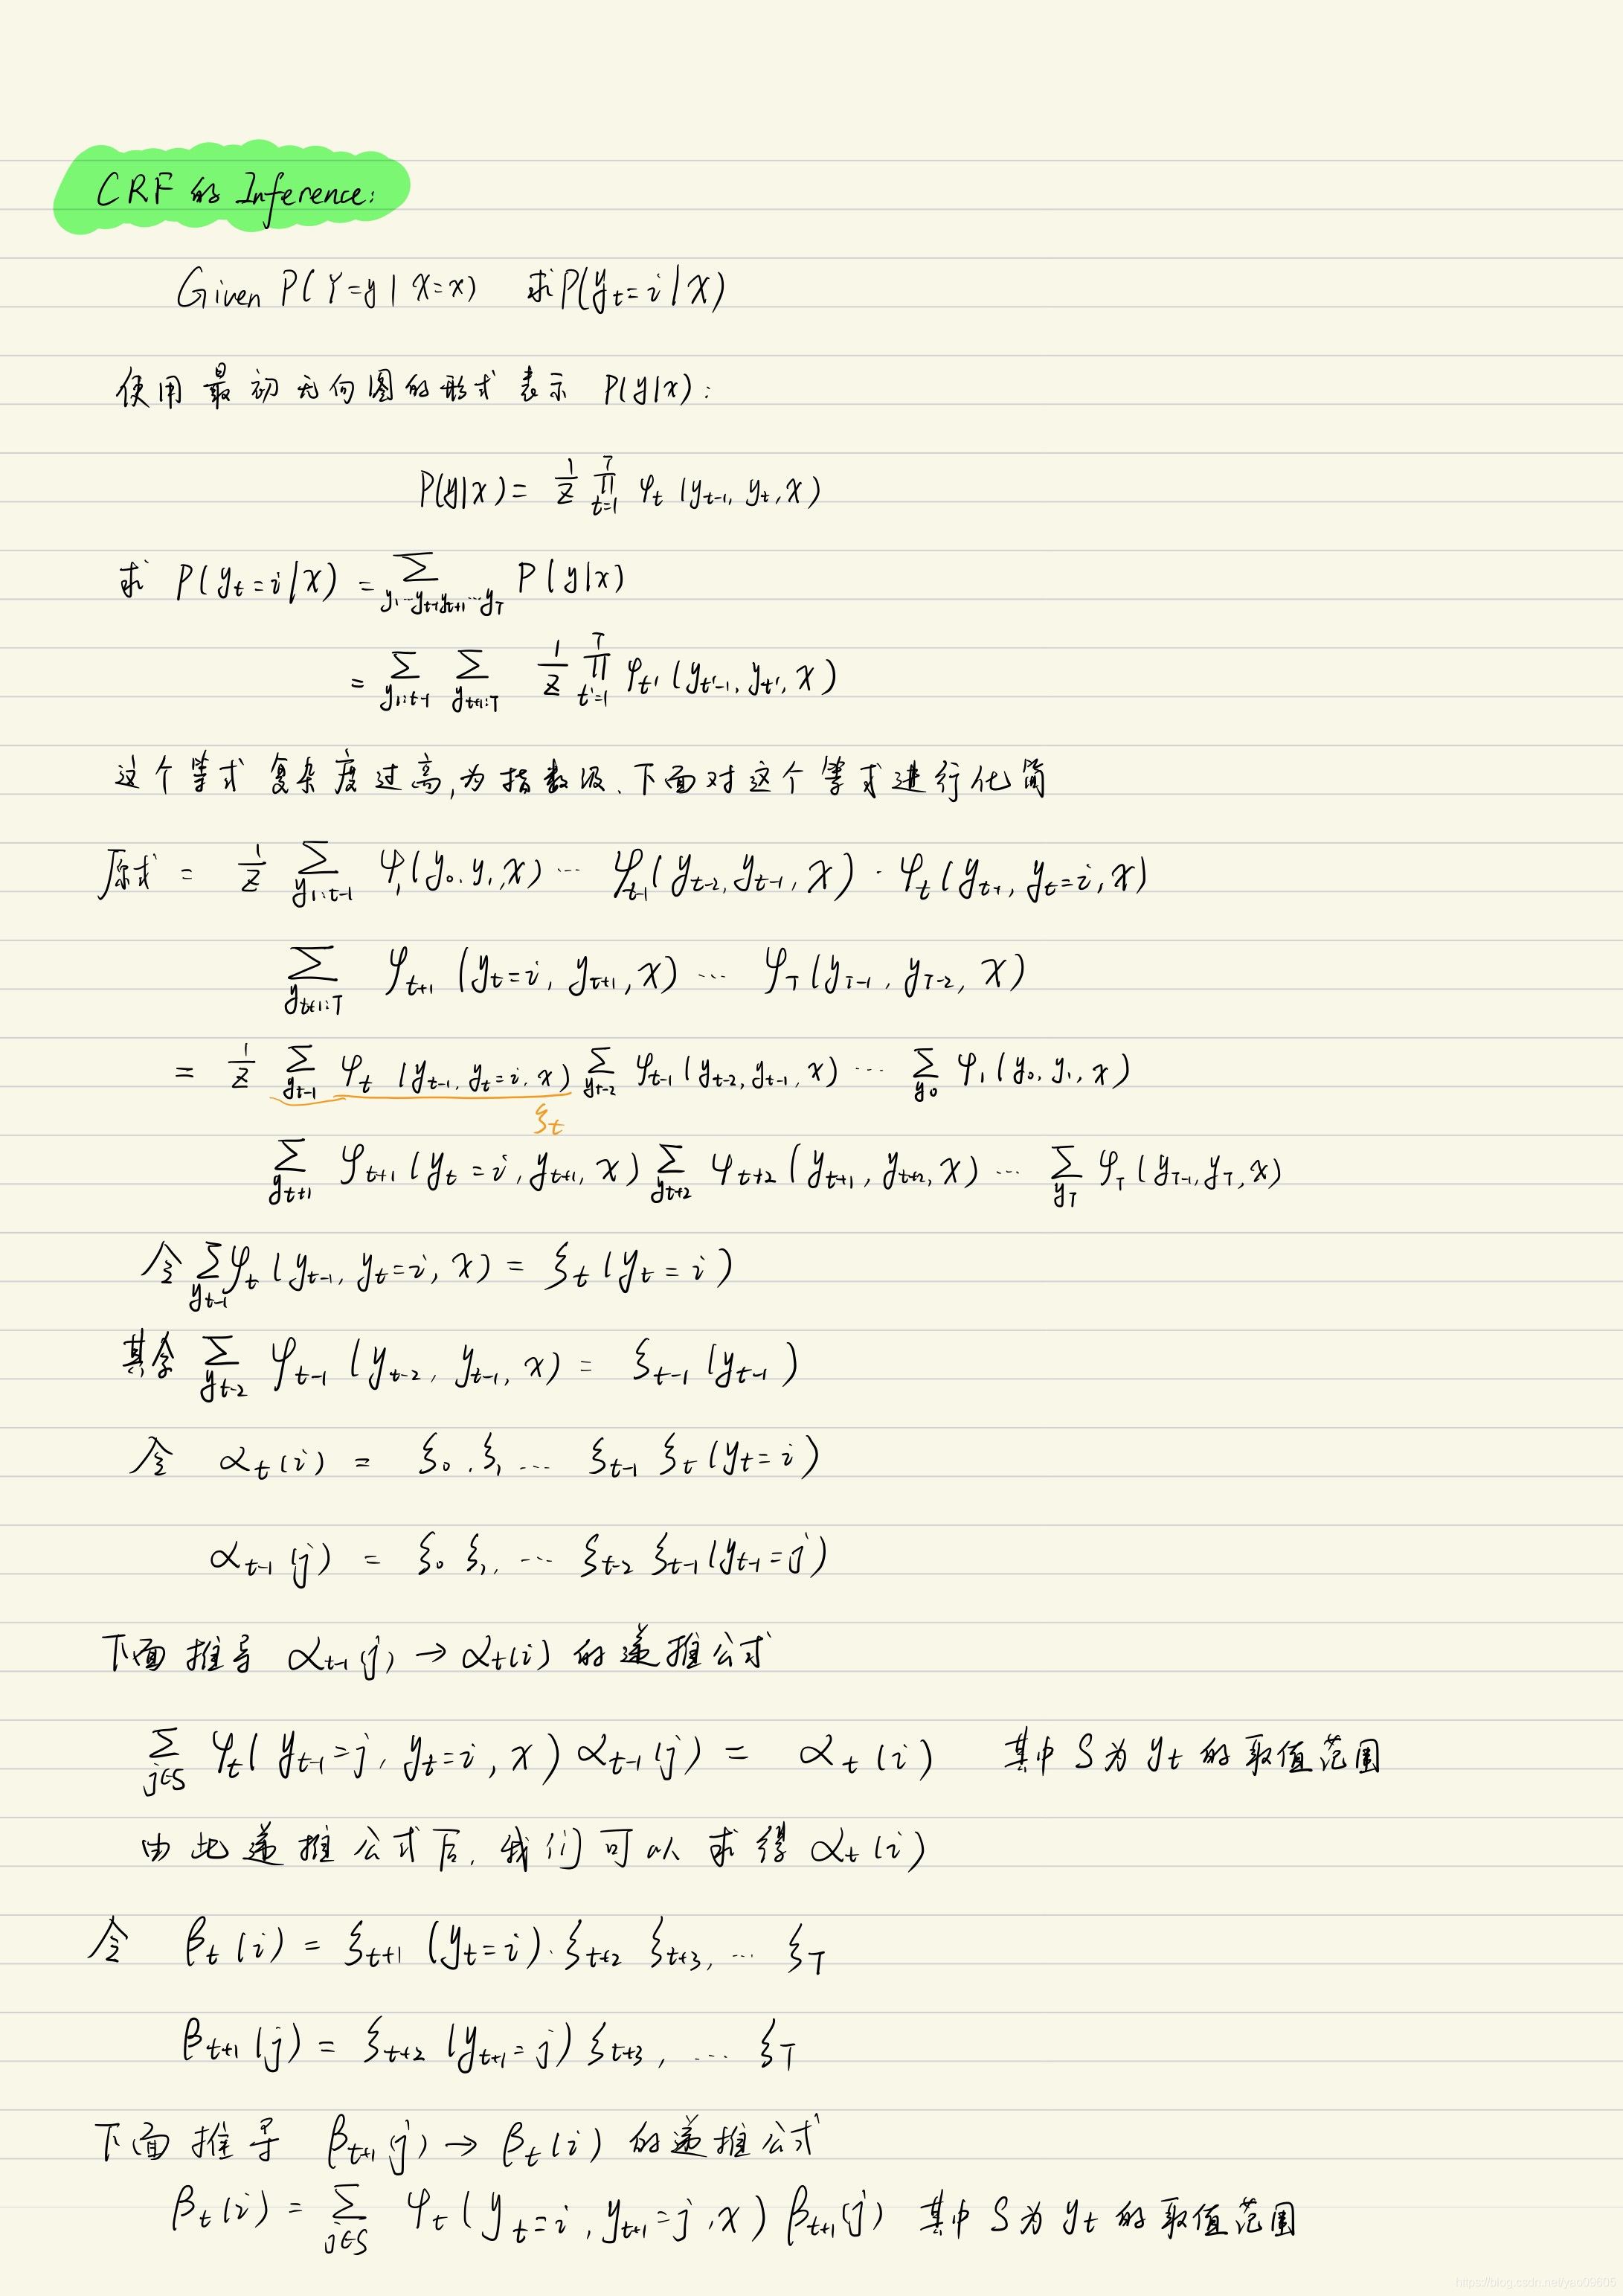 CRF 的 Inference:
Given P(Y=y | X=x) 求P(y_t=i | X)
使用最初无向图的形式表示 P(y|x):
P(y|x) = 1/Z ∏_{t=1}^{T} φ_t (y_{t-1}, y_t, x)
求 P(y_t=i | x) = Σ_{y_1…y_{t-1}y_{t+1}…y_T} P(y|x)
= Σ_{y_{1:t-1}} Σ_{y_{t+1:T}} 1/Z ∏_{t'=1}^{T} φ_{t'} (y_{t'-1}, y_{t'}, x)
这个等式复杂度过高,为指数级. 下面对这个等式进行化简
原式 = 1/Z Σ_{y_{1:t-1}} φ_1(y_0, y_1, x) … φ_{t-1}(y_{t-2}, y_{t-1}, x) · φ_t(y_{t-1}, y_t=i, x)
Σ_{y_{t+1:T}} φ_{t+1} (y_t=i, y_{t+1}, x) … φ_T(y_{T-1}, y_{T-2}, x)
= 1/Z Σ_{y_{t-1}} φ_t (y_{t-1}, y_t=i, x) Σ_{y_{t-2}} φ_{t-1}(y_{t-2}, y_{t-1}, x) … Σ_{y_0} φ_1(y_0, y_1, x)
ξ_t
Σ_{y_{t+1}} φ_{t+1}(y_t=i, y_{t+1}, x) Σ_{y_{t+2}} φ_{t+2}(y_{t+1}, y_{t+2}, x) … Σ_{y_T} φ_T(y_{T-1}, y_T, x)
令 Σ_{y_{t-1}} φ_t(y_{t-1}, y_t=i, x) = ξ_t(y_t=i)
其余 Σ_{y_{t-2}} φ_{t-1}(y_{t-2}, y_{t-1}, x) = ξ_{t-1}(y_{t-1})
令 α_t(i) = ξ_0.ξ_1 … ξ_{t-1} ξ_t(y_t=i)
α_{t-1}(j) = ξ_0 ξ_1, … ξ_{t-2} ξ_{t-1}(y_{t-1}=j)
下面推导 α_{t-1}(j) → α_t(i) 的递推公式
Σ_{j∈S} φ_t(y_{t-1}=j, y_t=i, x) α_{t-1}(j) = α_t(i) 其中 S 为 y_t 的取值范围
由此递推公式后, 我们可以求得 α_t(i)
令 β_t(i) = ξ_{t+1}(y_t=i).ξ_{t+2} ξ_{t+3}, … ξ_T
β_{t+1}(j) = ξ_{t+2}(y_{t+1}=j) ξ_{t+3}, … ξ_T
下面推导 β_{t+1}(j) → β_t(i) 的递推公式
β_t(i) = Σ_{j∈S} φ_t(y_t=i, y_{t+1}=j, x) β_{t+1}(j) 其中 S 为 y_t 的取值范围
https://blog.csdn.net/yao09605